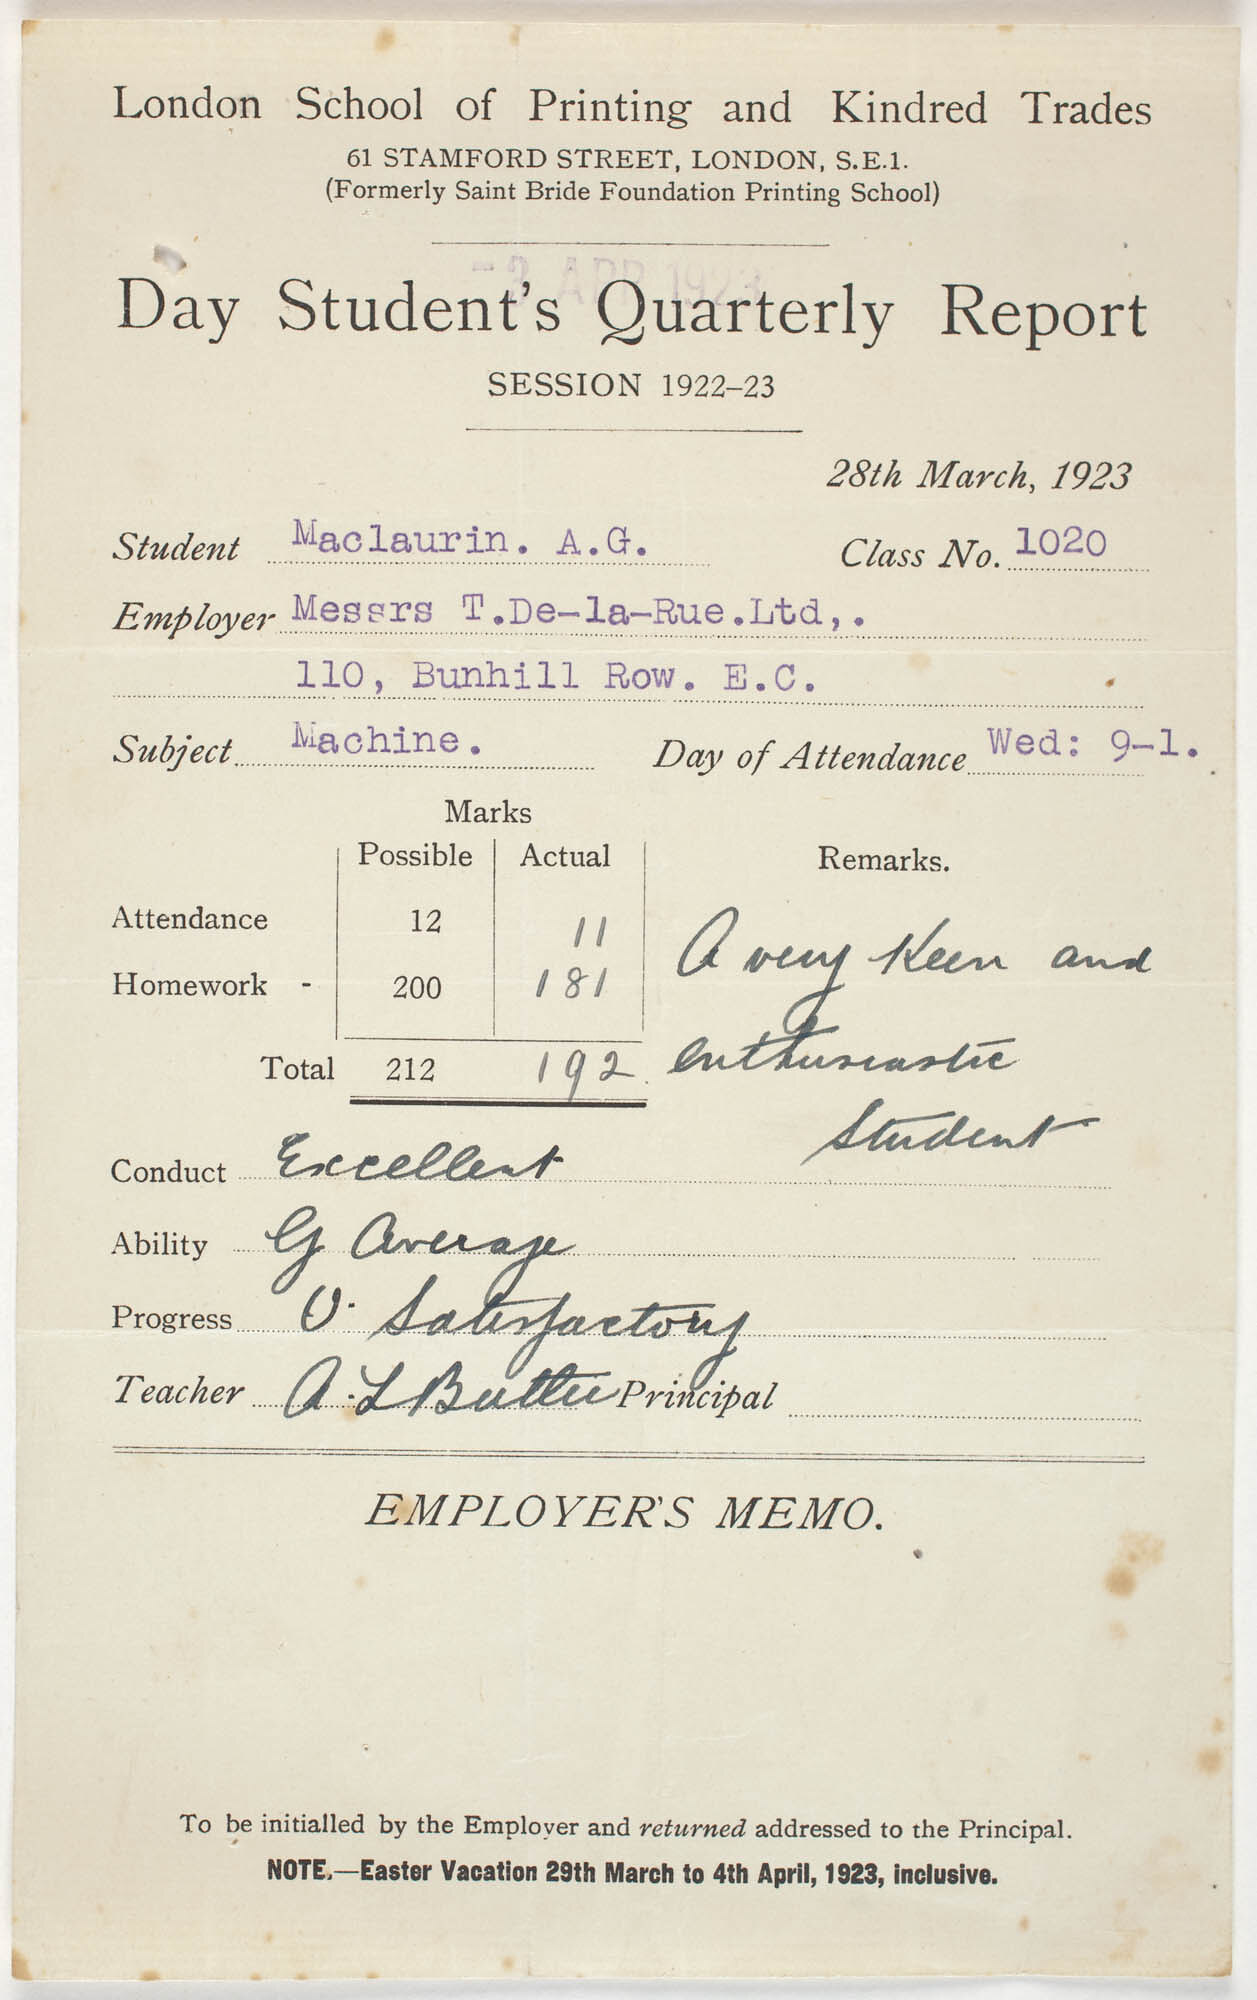 London School of Printing and Kindred Trades
61 STAMFORD STREET, LONDON, S.E.1.
(Formerly Saint Bride Foundation Printing School)
-3 APR 1923
Day Student's Quarterly Report
SESSION 1922–23
28th March, 1923
Student Maclaurin. A.G. Class No. 1020
Employer Messrs T.De-la-Rue.Ltd,.
110, Bunhill Row. E.C.
Subject Machine. Day of Attendance Wed: 9-1.
Marks
Possible Actual Remarks.
Attendance 12 11 A very Keen and
Homework - 200 181
Total 212 192 enthusiastic
Student
Conduct Excellent
Ability G Average
Progress V. Satisfactory
Teacher A. L Butler Principal
EMPLOYER'S MEMO.
To be initialled by the Employer and returned addressed to the Principal.
NOTE.—Easter Vacation 29th March to 4th April, 1923, inclusive.